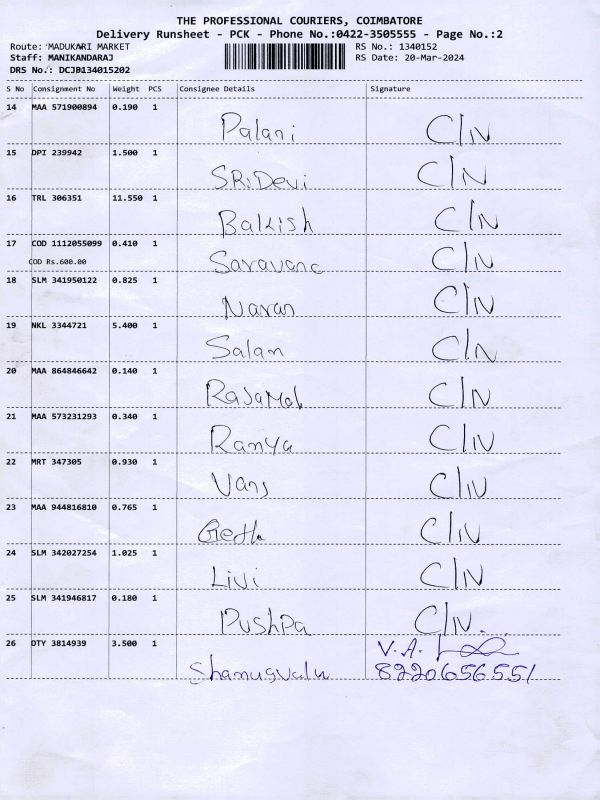 THE PROFESSIONAL COURIERS, COIMBATORE
Delivery Runsheet - PCK - Phone No.:0422-3505555 - Page No.:2
Route: MADUKARI MARKET RS No.: 1340152
Staff: MANIKANDARAJ RS Date: 20-Mar-2024
DRS No.: DCJB134015202
S No Consignment No Weight PCS Consignee Details Signature
14 MAA 571900894 0.190 1
Palani C/N
15 DPI 239942 1.500 1
SRiDevi C/N
16 TRL 306351 11.550 1
Balkish C/N
17 COD 1112055099 0.410 1
COD Rs.600.00 Saravana C/N
18 SLM 341950122 0.825 1
Naran C/N
19 NKL 3344721 5.400 1
Salam C/N
20 MAA 864846642 0.140 1
C/N
21 MAA 573231293 0.340 1
Ramya C/N
22 MRT 347305 0.930 1
C/N
23 MAA 944816810 0.765 1
Geetha C/N
24 SLM 342027254 1.025 1
Livi C/N
25 SLM 341946817 0.180 1
Pushpa C/N.
26 DTY 3814939 3.500 1 V.A.
Shamugvalu 8220656551